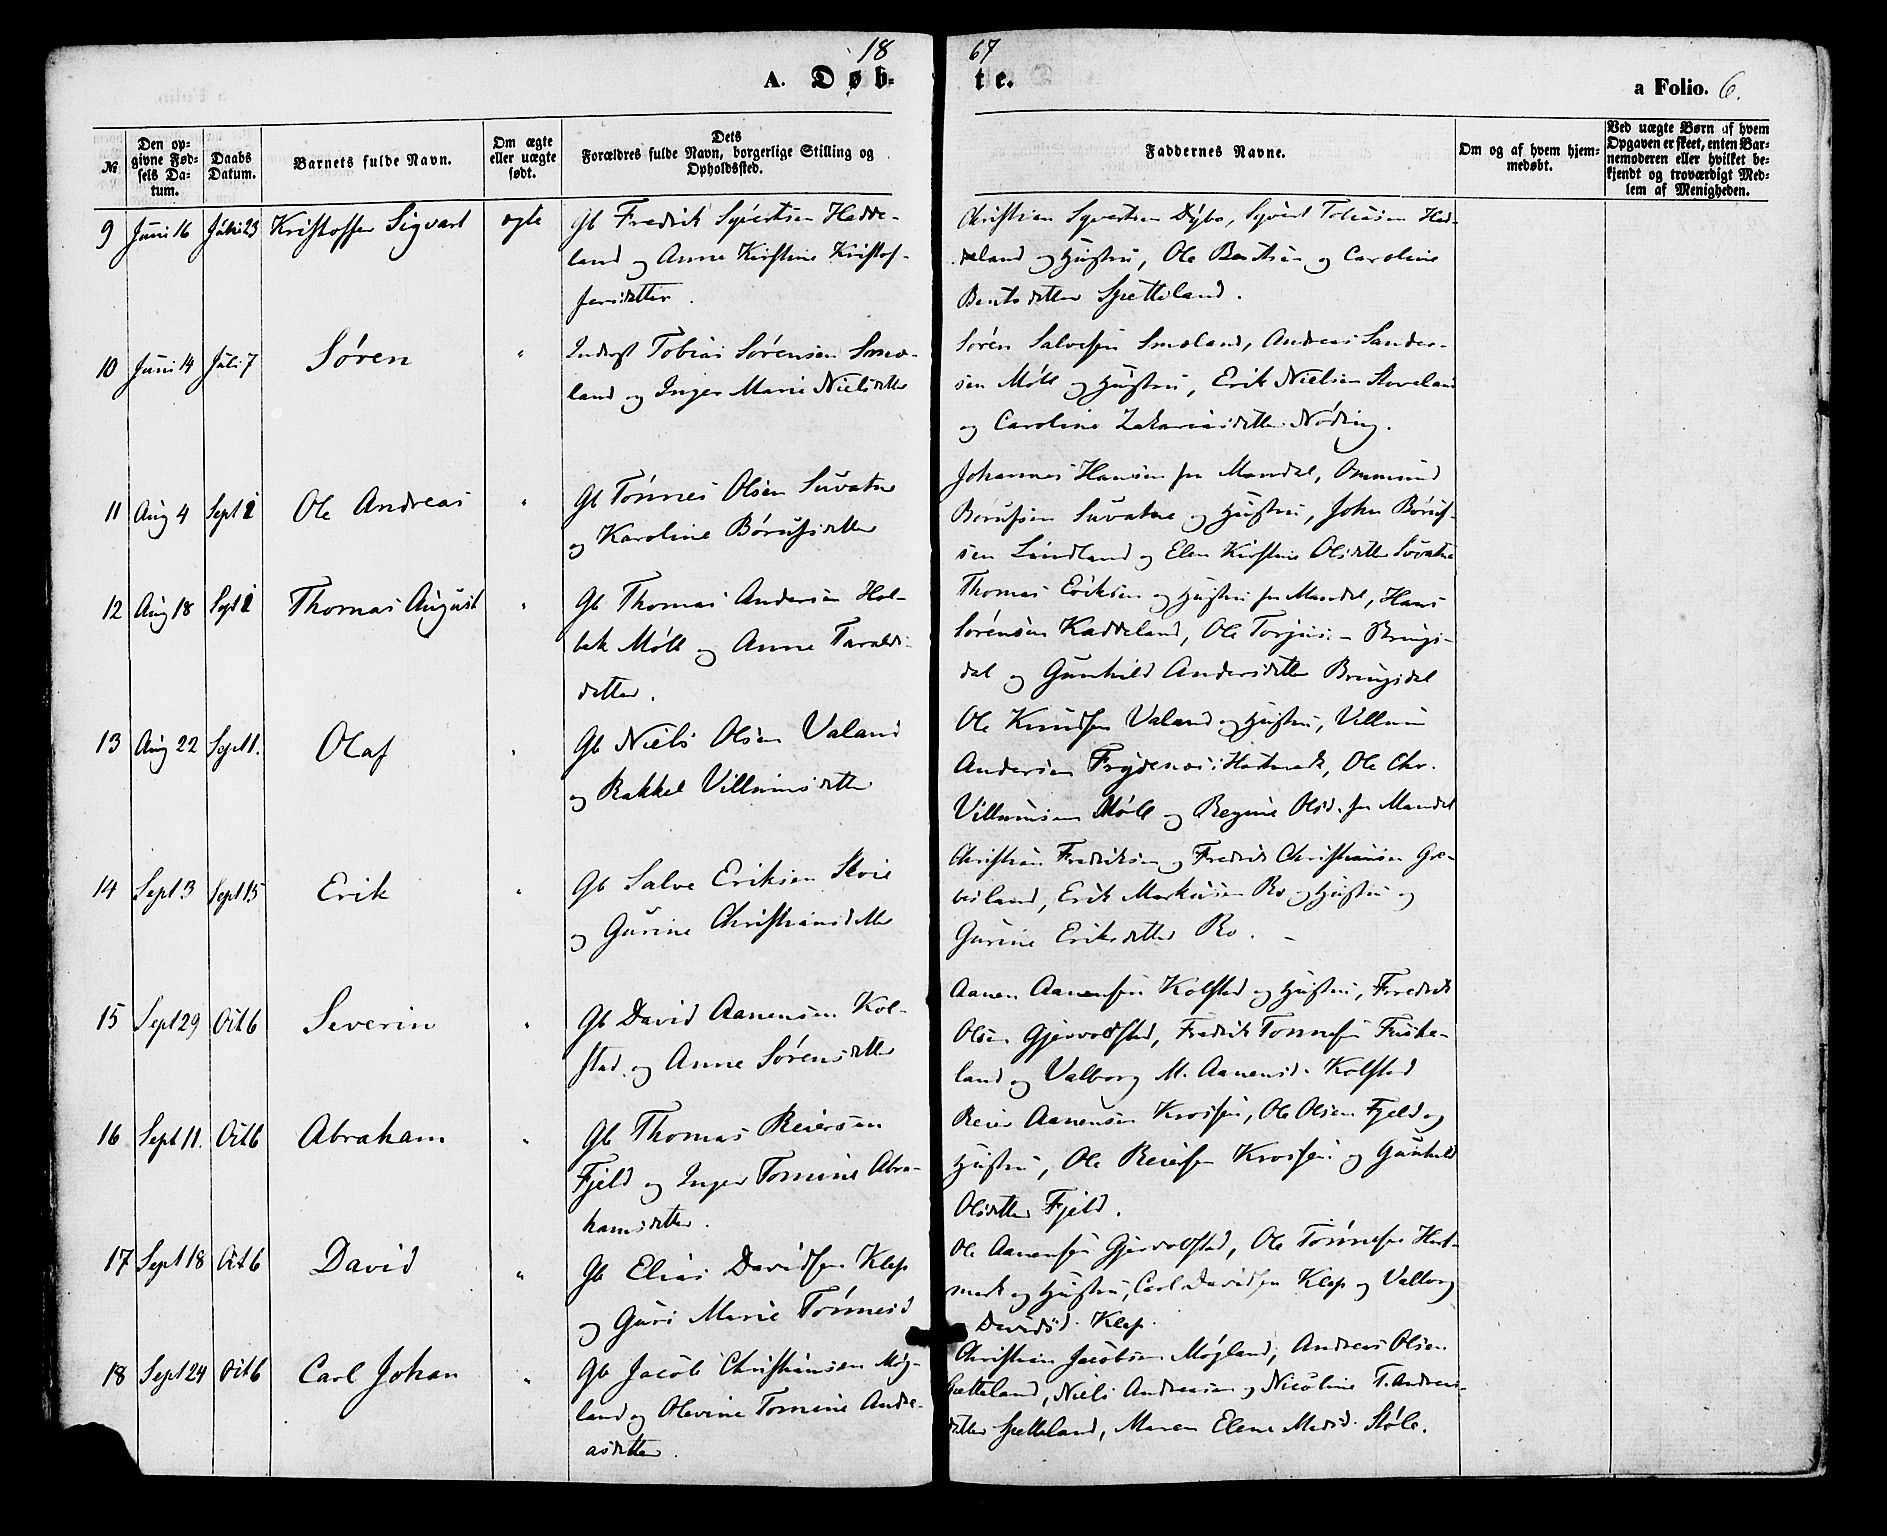 18 67
A. Døb- te. a Folio. 6.
№
Den op-
givne Fød-
sels Da-
tum.
Daabs
Datum.
Barnets fulde Navn.
Om ægte
eller uægte
født.
Dets
Forældres fulde Navn, borgerlige Stilling og
Opholdssted.
Faddernes Navne.
Om og af hvem hjem-
medøbt.
Ved uægte Børn af hvem
Opgaven er skeet, enten Bar-
nemoderen eller hvilket be-
kjendt og troværdigt Med-
lem af Menigheden.
9 Juni 16 Juni 23 Kristoffer Sigvart ægte
Gb Fredrik Syvertsen Hedde-
land og Anne Kirstine Kristof-
fersdatter.
Christian Syvertsen Dybo, Syvert Tobiasen Hed-
deland og Hustru, Ole Bentsen og Caroline
Bentsdatter Spetteland.
10 Juni 14 Juli 7 Søren "
Inderst Tobias Sørensen Smæ-
land og Inger Marie Nielsdatter
Søren Salvesen Smæland, Andreas Sander-
sen Møll og Hustru, Erik Nielsen Stoveland
og Caroline Zakariasdatter Nøding.
11 Aug 4 Sept 1 Ole Andreas "
Gb Tønnes Olsen Suvatne
og Karoline Børufsdatter
Johannes Hansen fra Mandal, Ommund
Børufsen Suvatne og Hustru, John Børuf-
sen Lindland og Elen Kirstine Olsdatter Suvatne
12 Aug 18 Sept 1 Thomas August "
Gb Thomas Andersen Hol-
bek Møll og Anne Taralds-
datter.
Thomas Eriksen og Hustru fra Mandal, Hans
Sørensen Kaddeland, Ole Torjus. - Brings-
dal og Gunhild Andersdatter Bringsdal
13 Aug 22 Sept 1. Olaf "
Gb Niels Olsen Valand
og Rakkel Villumsdatter
Ole Knudsen Valand og Hustru, Villum
Andersen Frydenæs i Hartmark, Ole Chr.
Villumsen Møll og Regine Olsd. fra Mandal
14 Sept 3 Sept 15 Erik "
Gb Salve Eriksen Stoie
og Gurine Christiansdatter
Christian Fredriksen og Fredrik Christiansen Gre-
vesland, Erik Markusen Ro og Hustru og
Gurine Eriksdatter Ro. -
15 Sept 29 Oct 6 Severin "
Gb David Aanensen Kol-
stad og Anne Sørensdatter
Aanen Aanensen Kolstad og Hustru, Fredrik
Olsen Gjervoldstad, Fredrik Tønnesen Fuske-
land og Valborg M. Aanensd. Kolstad
16 Sept 11. Oct 6 Abraham "
Gb Thomas Reiersen
Fjeld og Inger Tomine Abra-
hamsdatter.
Reier Aanensen Krossen, Ole Olsen Fjeld og
Hustru, Ole Reiersen Krossen og Gunhild
Olsdatter Fjeld.
17 Sept 18 Oct 6 David "
Gb Elias Davidsen Klep
og Guri Marie Tønnesd
Ole Aanensen Gjervoldstad, Ole Tønnesen Hart-
mark og Hustru, Carl Davidsen Klep og Valborg
Davidsd. Klep.
18 Sept 24 Oct 6 Carl Johan "
Gb Jacob Christiansen Møg-
land og Olevine Tomine Andre-
asdatter.
Christian Jacobsen Møgland, Andreas Olsen
Spetteland, Niels Andreasen og Nicoline T. Andreas-
datter Spetteland, Maren Elene Madsd. Støle.